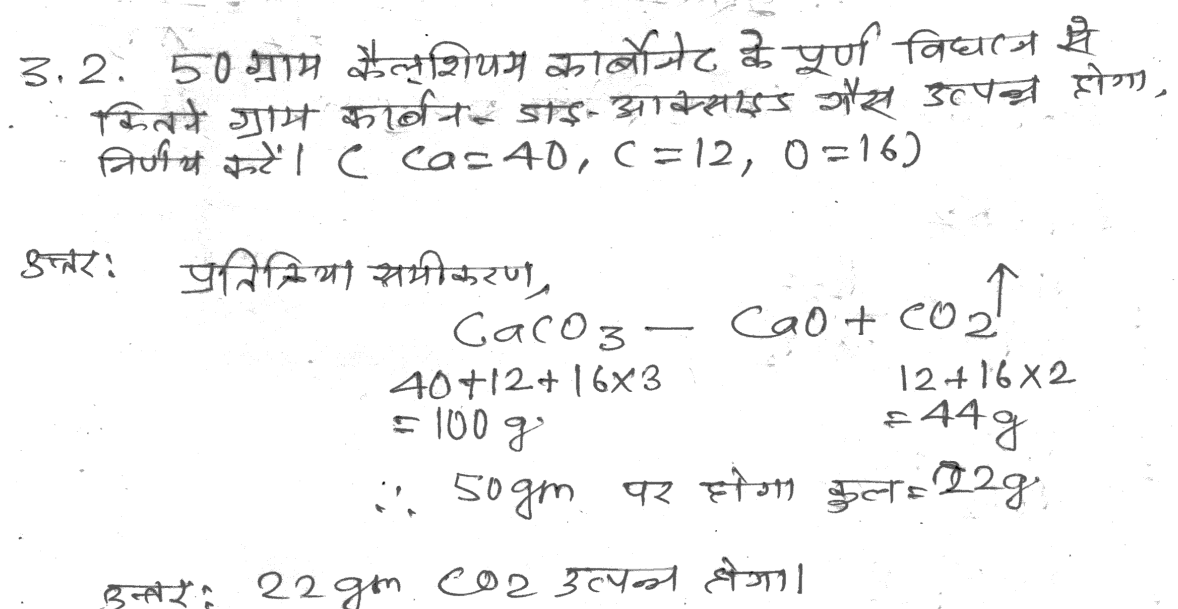 3.2. 50 ग्राम कैल्शियम कार्बोनेट के पूर्ण विघटन से
कितने ग्राम कार्बन-डाइ-आक्साइड गैस उत्पन्न होगा,
निर्णय करें। ( Ca=40, C=12, O=16)
उत्तर: प्रतिक्रिया समीकरण,
CaCO3 — CaO + CO2↑
40+12+16×3 12+16×2
=100 g =44g
∴ 50gm पर होगा कुल=22g
उत्तर: 22gm CO2 उत्पन्न होगा।